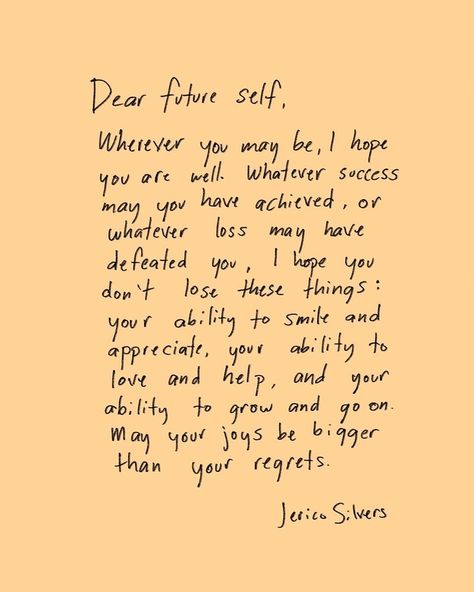 Dear future self,
Wherever you may be, I hope
you are well. Whatever success
may you have achieved, or
whatever loss may have
defeated you, I hope you
don't lose these things:
your ability to smile and
appreciate, your ability to
love and help, and your
ability to grow and go on.
May your joys be bigger
than your regrets.
Jerico Silvers